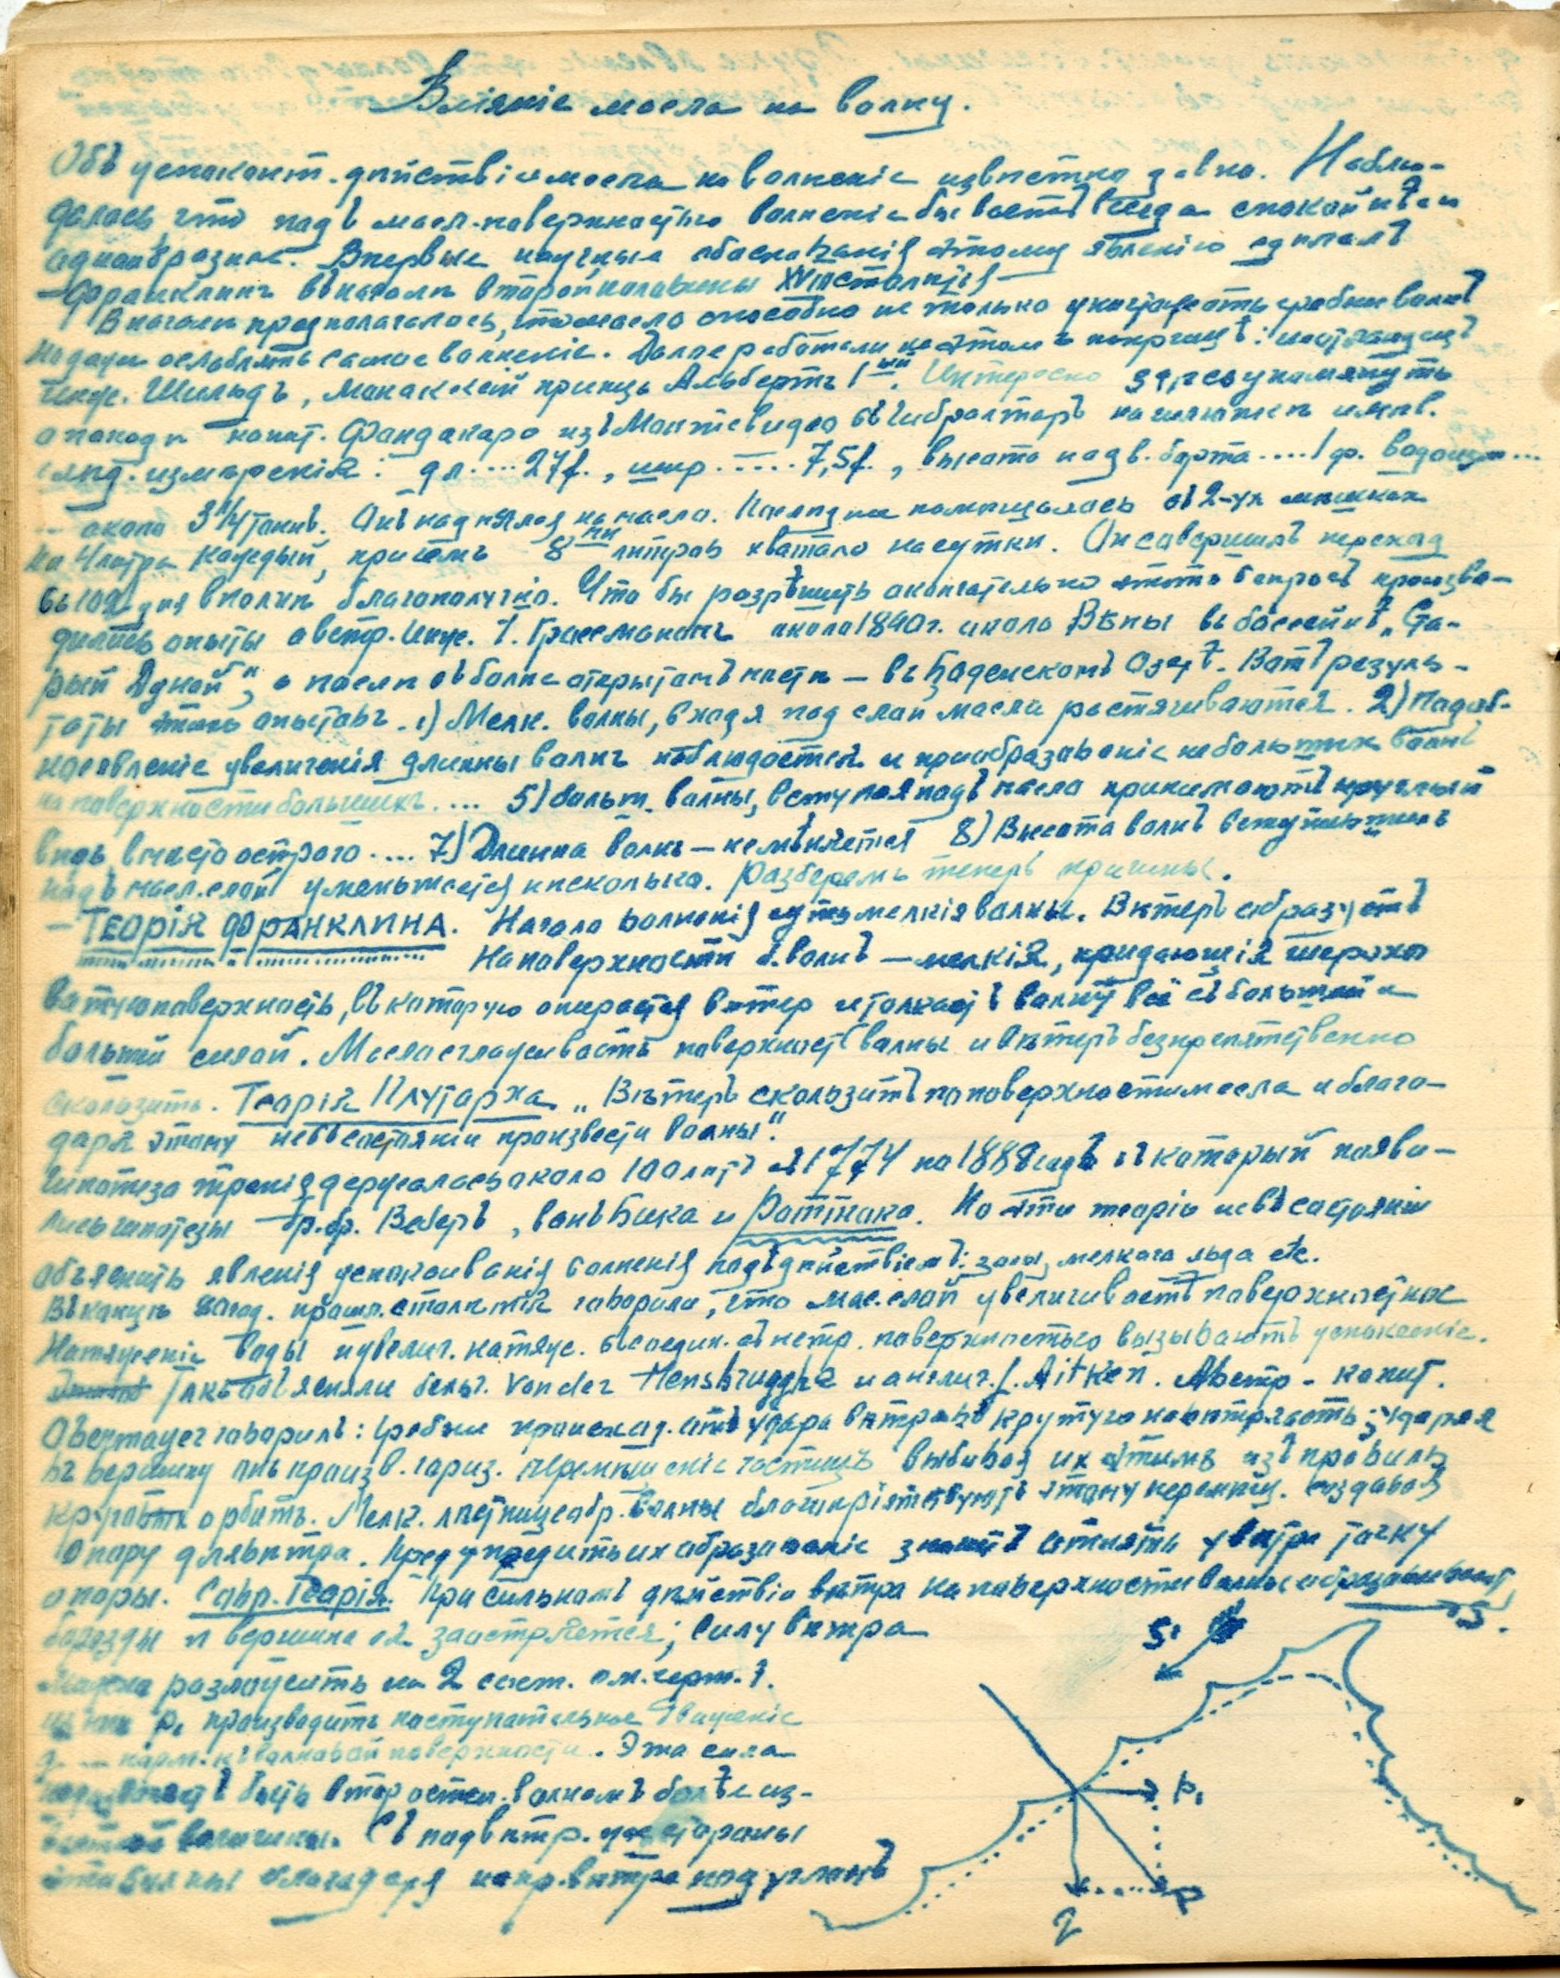 Вліяніе масла на волну.
Объ успокоит. дѣйствіи масла на волненіе извѣстно давно. Наблю-
далось, что подъ масл. поверхностью волненіе бываетъ всегда спокойнѣе и
однообразнѣе. Впервые научныя обоснованія этому явленію сдѣлалъ
Франклинъ въ началѣ второй половины XVIII столѣтія —
Вначалѣ предполагалось, что масло способно не только уничтожать гребни волнъ
но даже ослаблять самое волненіе. Далѣе работали на этомъ поприщѣ: шотландецъ
инж. Шильдъ, Монакскій принцъ Альбертъ 1ый. Интересно здѣсь упомянуть
о походѣ капит. Фондакаро изъ Монтевидео въ Гибралтаръ на шлюпкѣ имѣв.
слѣд. измѣренія: дл.... 27f., шир..... 7,5f., высота надв. борта.... 1 ф. водоизм...
... около 3 1/4 тоннъ. Онъ надѣялся на масло. Послѣднее помѣщалось въ 2-ухъ мѣшкахъ
по 4 литра каждый, причемъ 8ми литровъ хватало на сутки. Онъ совершилъ переходъ
въ дня вполнѣ благополучно. Что бы разрѣшить окончательно этотъ вопросъ произво-
дились опыты австр. инж. І. Гроссманомъ около 1890 г. около Вѣны въ бассейнѣ „Ста-
рый Дунай", а послѣ въ болѣе открытомъ мѣстѣ — въ Боденскомъ Озерѣ. Вотъ резуль-
таты этихъ опытовъ. 1) Мелк. волны, входя под слой масла растягиваются. 2) Подоб-
ное явленіе увеличенія длинны волнъ наблюдается и преобразованіе небольшихъ волнъ
на поверхности большихъ.... 5) больш. волны, вступая подъ масло принимаютъ круглый
видъ вмѣсто острого.... 7) Длинна волнъ — не мѣняется 8) Высота волнъ вступившихъ
подъ масл. слой уменьшается нѣсколько. Разберемъ теперь причины.
— ТЕОРІЯ ФРАНКЛИНА. Начало волненія суть мелкія волны. Вѣтеръ образуетъ
На поверхности б. волнъ — мелкія, придающія шерохо
ватую поверхность, въ которую опирается вѣтер и толкаетъ волну всё съ большей и
большей силой. Масло сглаживаетъ поверхность волны и вѣтеръ безпрепятственно
скользитъ. Теорія Плутарха „Вѣтеръ скользитъ по поверхности масла и благо-
даря этому не въ состояніи произвести волны".
Гипотеза тренія держалась около 100 лѣтъ съ 1774 по 1888 годъ въ который появи-
лись гипотезы бр. бр. Веберъ, вонъ Бика и Роттока. Но эти теоріи не въ состояніи
объяснить явленія успокоиванія волненія подъ дѣйствіемъ: золы, мелкаго льда etc.
Въ концѣ прошл. столѣтія говорили, что мас. слой увеличиваетъ поверхностное
Натяженіе воды и увелич. натяж. въ соедин. съ вѣтр. поверхностью вызываютъ успокоеніе.
Такъ объясняли бельг. Van der Mensbrugghe и англич. J. Aitken. Австр. - капит.
Obermayer говорилъ: гребни происход. отъ удара вѣтра въ крутую ; ударяя
въ вершину онъ произв. гориз. перемѣщеніе частицъ выбивая их этимъ изъ правиль
круговыхъ орбитъ. Мелк. волны благопріятствуютъ этому перемѣщ. создавая
опору для вѣтра. Предупредить их образованіе значитъ отнять у вѣтра точку
опоры. Совр. Теорія. При сильномъ дѣйствіи вѣтра на поверхности волны
борозды и вершина ея заостряется; силу вѣтра
можно разложить на 2 сост. см. черт. 1.
p₁ производитъ поступательное движеніе
q — норм. къ волновой поверхности. Эта сила
быть второстеп. волномъ болѣе из-
величины. Съ подвѣтр. же стороны
благодаря напр. вѣтра под угломъ
S.
S'
p₁
q
p